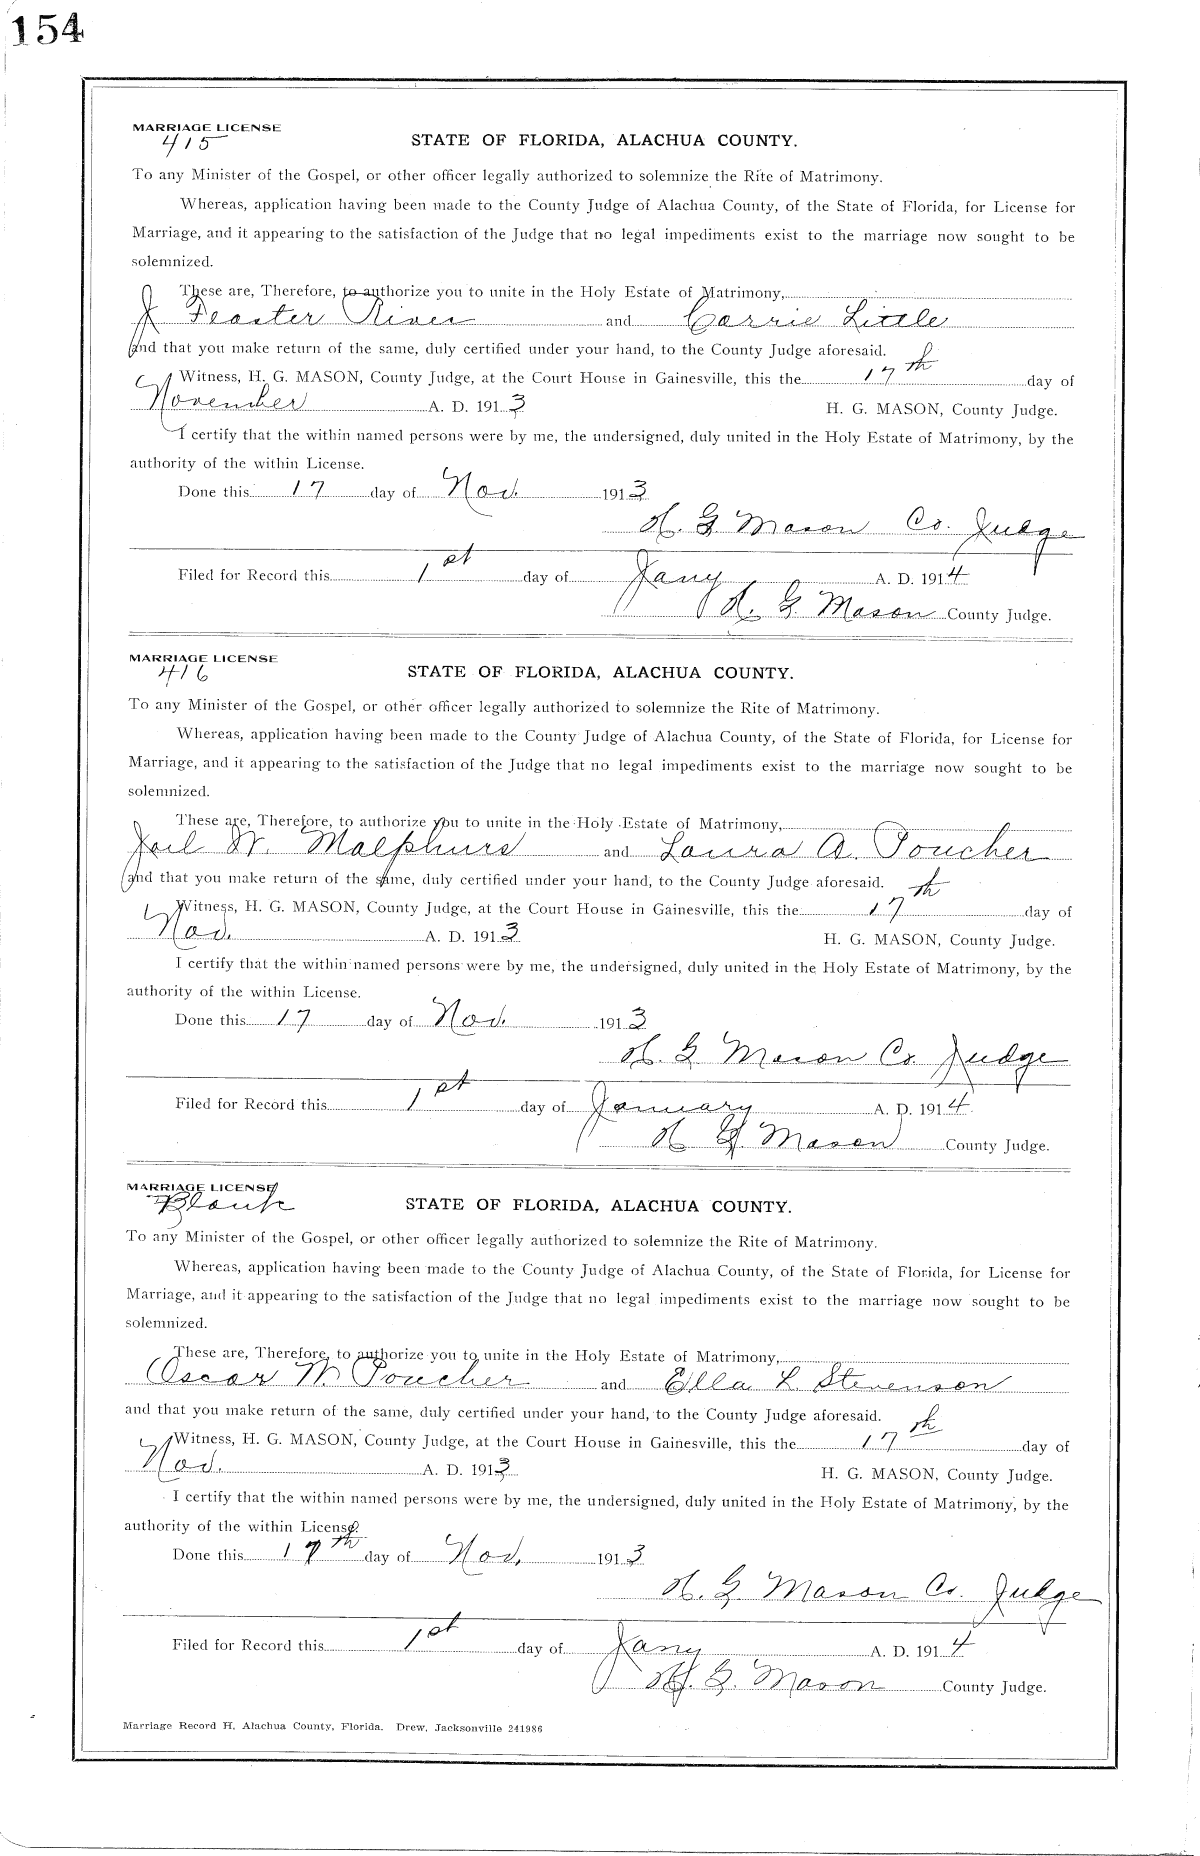 154
MARRIAGE LICENSE
415
STATE OF FLORIDA, ALACHUA COUNTY.
To any Minister of the Gospel, or other officer legally authorized to solemnize the Rite of Matrimony.
Whereas, application having been made to the County Judge of Alachua County, of the State of Florida, for License for
Marriage, and it appearing to the satisfaction of the Judge that no legal impediments exist to the marriage now sought to be
solemnized.
These are, Therefore, to authorize you to unite in the Holy Estate of Matrimony,
J Feaster River and Carrie Little
and that you make return of the same, duly certified under your hand, to the County Judge aforesaid.
Witness, H. G. MASON, County Judge, at the Court House in Gainesville, this the 17th day of
November A. D. 1913 H. G. MASON, County Judge.
I certify that the within named persons were by me, the undersigned, duly united in the Holy Estate of Matrimony, by the
authority of the within License.
Done this 17 day of Nov. 1913
H. G Mason Co. Judge
Filed for Record this 1st day of Jany A. D. 1914
H. G. Mason County Judge.
MARRIAGE LICENSE
416
STATE OF FLORIDA, ALACHUA COUNTY.
To any Minister of the Gospel, or other officer legally authorized to solemnize the Rite of Matrimony.
Whereas, application having been made to the County Judge of Alachua County, of the State of Florida, for License for
Marriage, and it appearing to the satisfaction of the Judge that no legal impediments exist to the marriage now sought to be
solemnized.
These are, Therefore, to authorize you to unite in the Holy Estate of Matrimony,
Joel W. Malphurs and Laura A. Poucher
and that you make return of the same, duly certified under your hand, to the County Judge aforesaid.
Witness, H. G. MASON, County Judge, at the Court House in Gainesville, this the 17th day of
Nov. A. D. 1913 H. G. MASON, County Judge.
I certify that the within named persons were by me, the undersigned, duly united in the Holy Estate of Matrimony, by the
authority of the within License.
Done this 17 day of Nov. 1913
H. G Mason Co. Judge
Filed for Record this 1st day of January A. D. 1914
H G Mason County Judge.
MARRIAGE LICENSE
Blank
STATE OF FLORIDA, ALACHUA COUNTY.
To any Minister of the Gospel, or other officer legally authorized to solemnize the Rite of Matrimony.
Whereas, application having been made to the County Judge of Alachua County, of the State of Florida, for License for
Marriage, and it appearing to the satisfaction of the Judge that no legal impediments exist to the marriage now sought to be
solemnized.
These are, Therefore, to authorize you to unite in the Holy Estate of Matrimony,
Oscar M. Poucher and Ella L Stevenson
and that you make return of the same, duly certified under your hand, to the County Judge aforesaid.
Witness, H. G. MASON, County Judge, at the Court House in Gainesville, this the 17th day of
Nov. A. D. 1913 H. G. MASON, County Judge.
I certify that the within named persons were by me, the undersigned, duly united in the Holy Estate of Matrimony, by the
authority of the within License.
Done this 17th day of Nov. 1913
H. G Mason Co. Judge
Filed for Record this 1st day of Jany A. D. 1914
H. G. Mason County Judge.
Marriage Record H, Alachua County, Florida. Drew, Jacksonville 241986